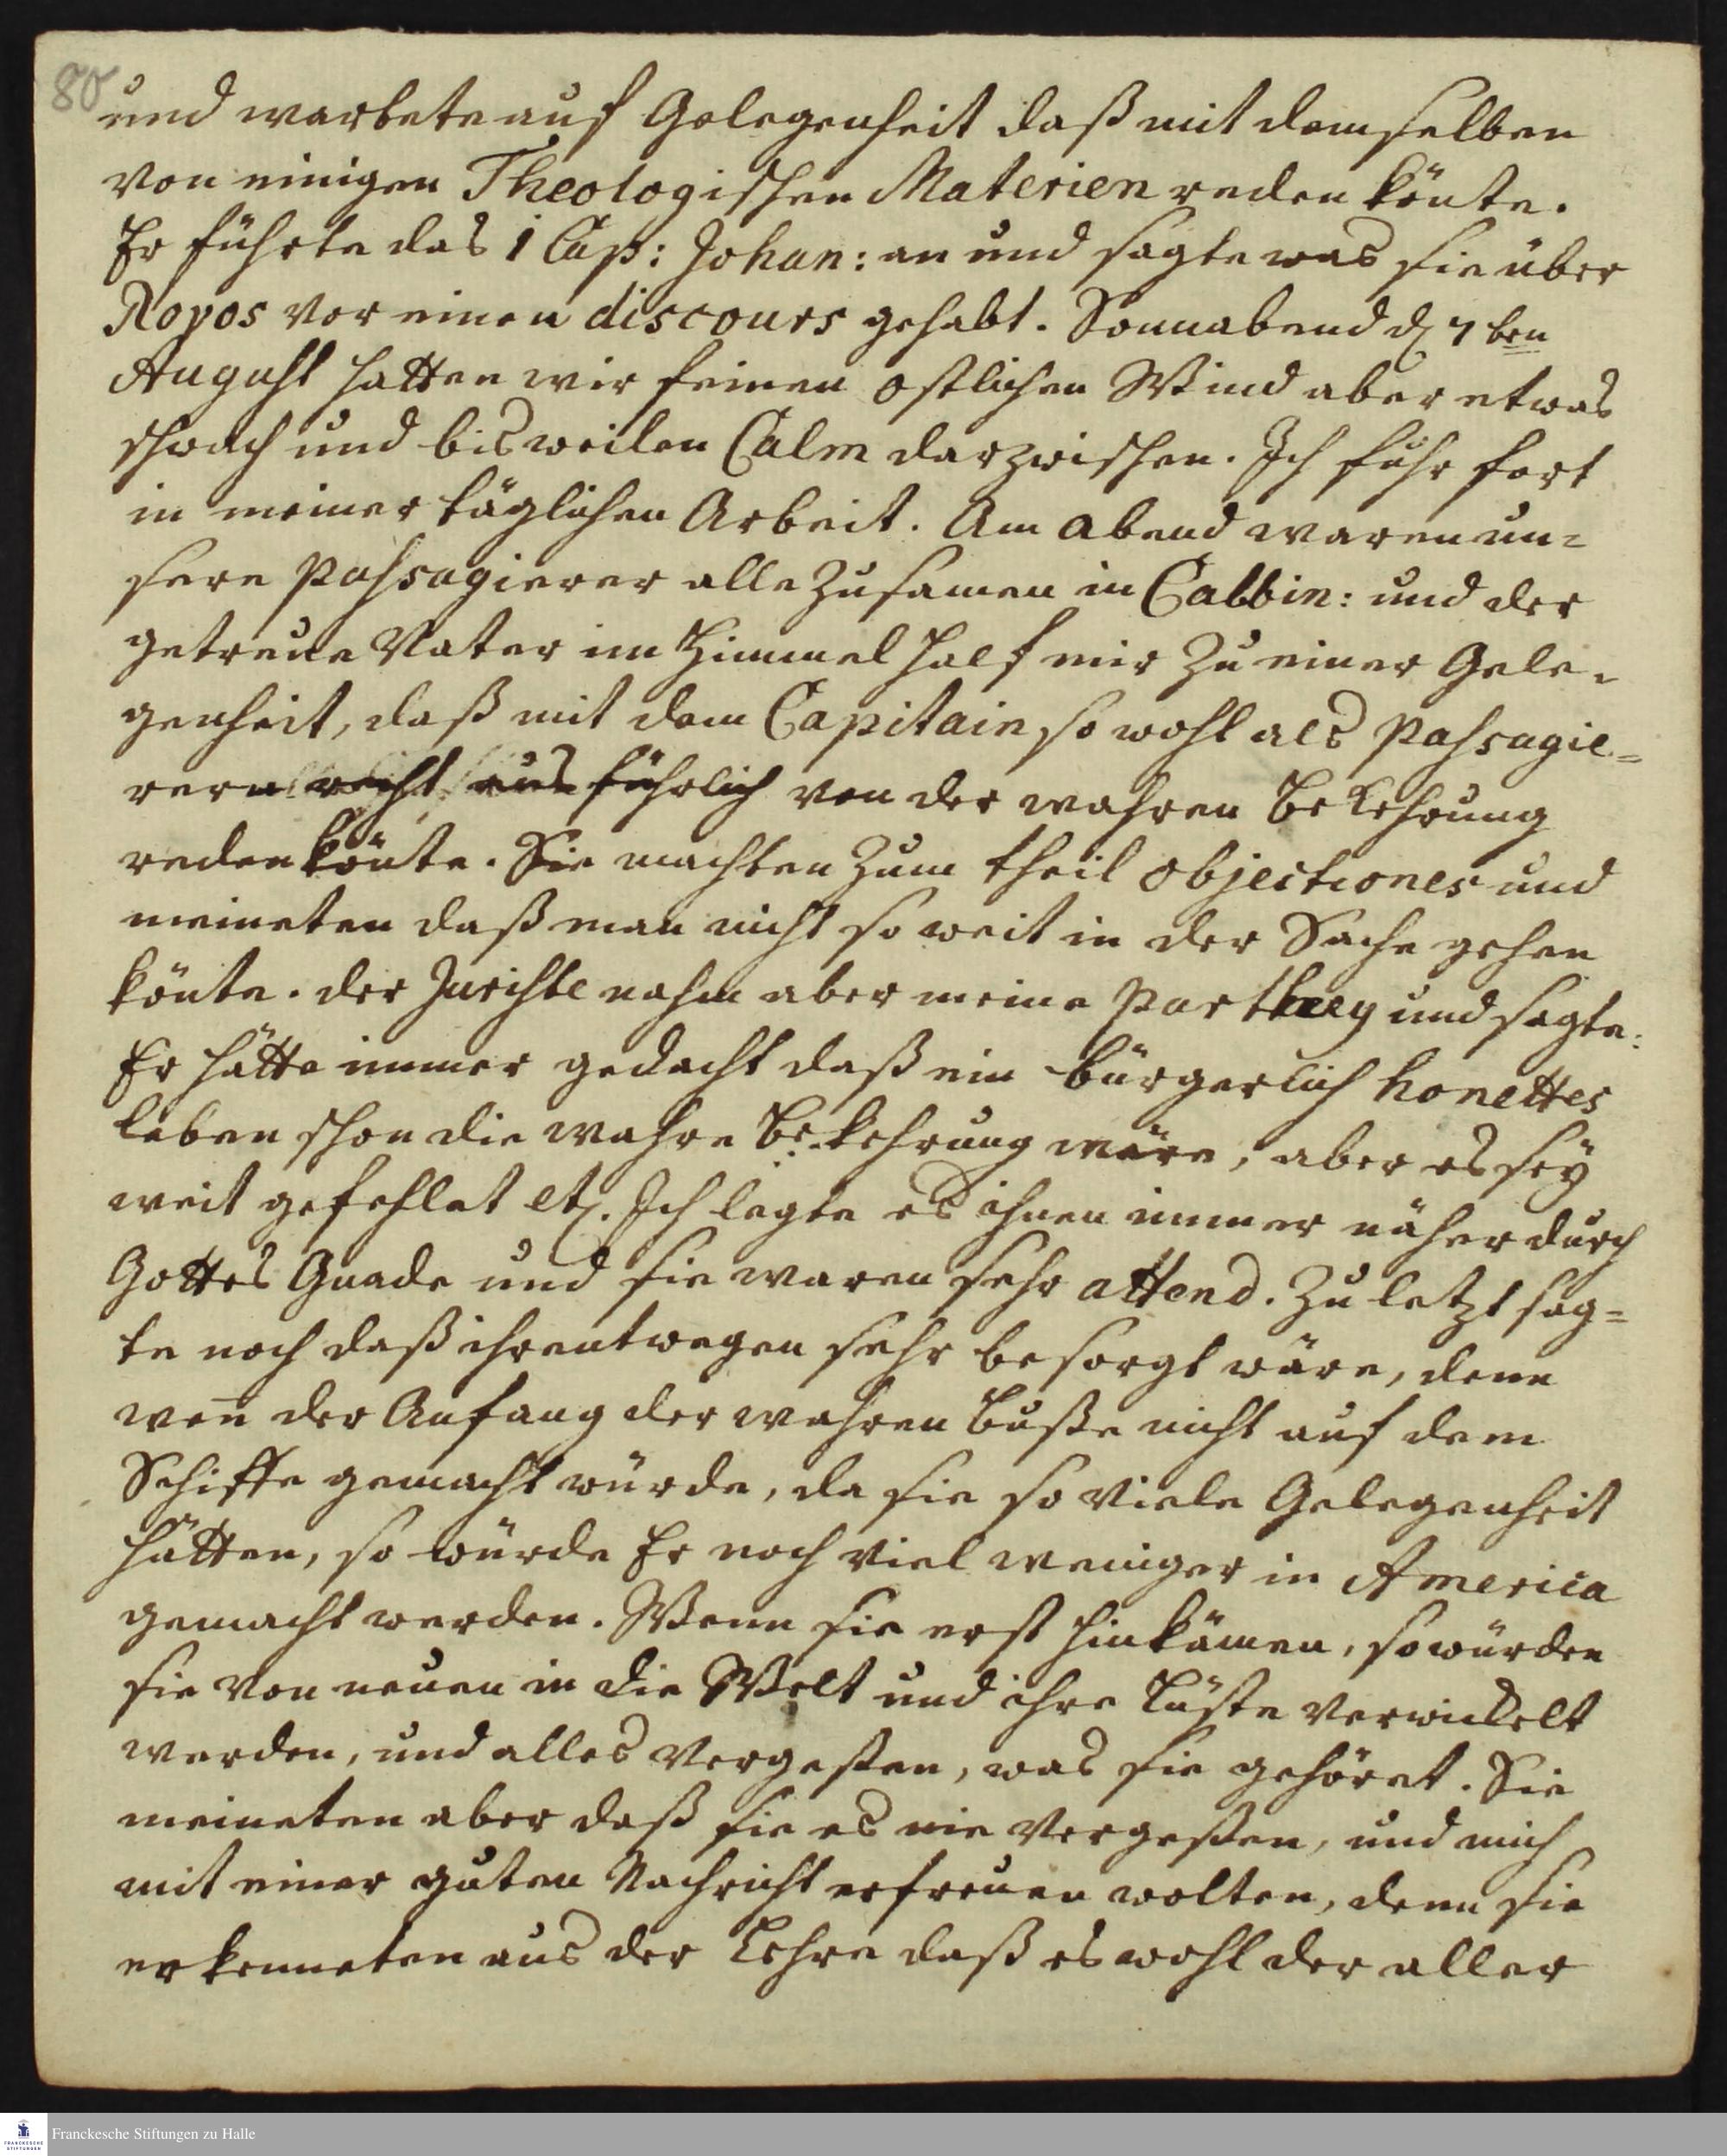 80
und wartete auf Gelegenheit daß mit demselben
von einigen Theologischen Materien reden könte.
Er führte das 1 Cap: Johan: an und sagte was sie über
λογος vor einen discours gehabt. Sonnabend d 7 ten
August hatten wir feinen ostlichen Wind aber etwas
schwach und bisweilen Calm darzwischen. Ich fuhr fort
in meiner täglichen Arbeit. Am Abend waren un=
sere Passagierer alle zusamen in Cabbin: und der
getreue Vater im Himmel half mir zu einer Gele-
genheit, daß mit dem Capitain so wohl als Passagie=
rern recht ausführlich von der wahren Bekehrung
reden könte. Sie machten zum theil objectiones und
meineten daß man nicht so weit in der Sache gehen
könte. der Juriste nahm aber meine Parthey und sagte:
Er hätte immer gedacht daß ein bürgerlich honettes
leben schon die wahre Bekehrung wäre, aber es sey
weit gefehlet etc. Ich legte es ihnen immer näher durch
Gottes Gnade und sie waren sehr attend. Zu letzt sag=
te noch daß ihrentwegen sehr besorgt wäre, denn
weñ der Anfang der wahren Buße nicht auf dem
Schiffe gemacht würde, da sie so viele Gelegenheit
hätten, so würde Er noch viel weniger in America
gemacht werden. Wenn sie erst hinkämen, so würden
sie von neuen in die Welt und ihre Lüste verwickelt
werden, und alles vergeßen, was sie gehöret. Sie
meineten aber daß sie es nie vergeßen, und mich
mit einer guten Nachricht erfreuen wolten, denn sie
erkenneten aus der Lehre daß es wohl der aller
FRANCKESCHE STIFTUNGEN
Franckesche Stiftungen zu Halle